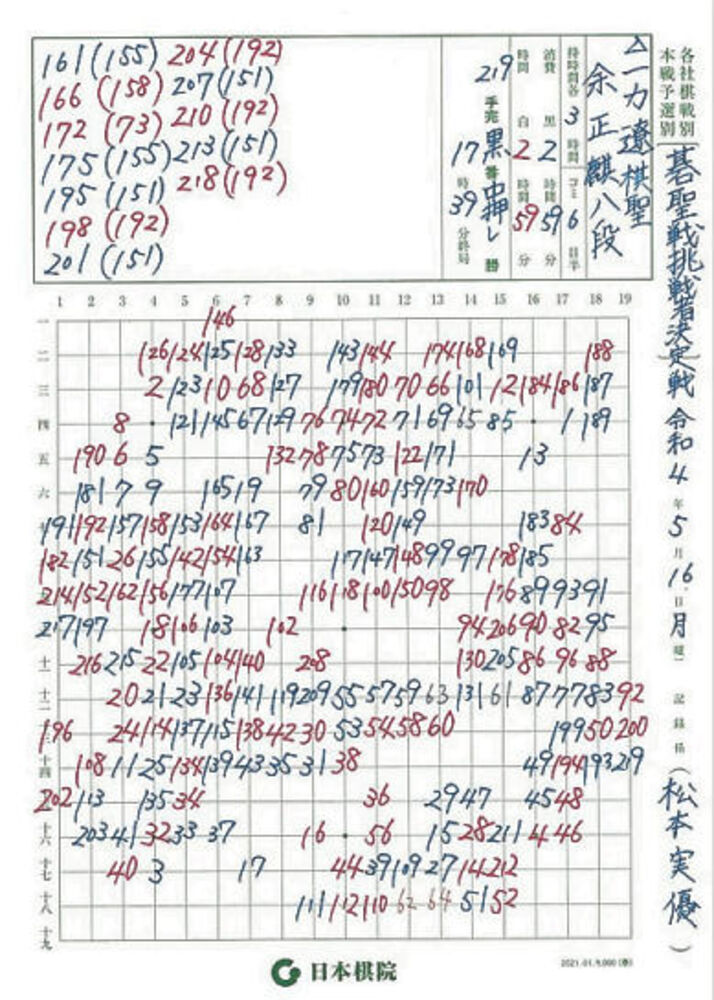 各社棋戦別
本戦予選別
碁聖戦挑戦者決定戦
令和4年5月16日月曜
記録係(松本実優)
△一力遼棋聖
余正麒八段
持時間各3時間 コミ6目半
消費 黒2時間59分
時間 白2時間59分
219手完 黒番中押し勝
17時39分終局
161(155) 204(192)
166(158) 207(151)
172(73) 210(192)
175(155) 213(151)
195(151) 218(192)
198(192)
201(151)
1 2 3 4 5 6 7 8 9 10 11 12 13 14 15 16 17 18 19
一 146
二 126 124 125 128 133 143 144 174 168 169 188
三 2 123 10 68 127 179 180 70 66 101 12 184 186 187
四 8 121 145 67 129 76 74 72 71 69 65 85 1 189
五 190 6 5 132 78 75 73 122 171 13
六 181 7 9 165 19 79 80 160 159 173 170
191 192 157 158 153 164 167 81 120 149 183 84
八 182 151 26 155 142 154 163 117 147 148 99 97 178 185
九 214 152 162 156 177 107 116 118 100 150 98 176 89 93 91
十 217 197 18 106 103 102 94 206 90 82 95
十一 216 215 22 105 104 140 208 130 205 86 96 88
十二 20 21 23 136 141 119 209 55 57 59 63 131 61 87 77 83 92
196 24 114 137 115 138 42 30 53 54 58 60 199 50 200
十四 108 11 25 134 139 43 35 31 38 49 194 193 219
202 113 135 34 36 29 47 45 48
十六 203 41 32 33 37 16 56 15 28 211 4 46
十七 40 3 17 44 39 109 27 14 212
十八 111 112 110 62 64 51 52
十九
日本棋院